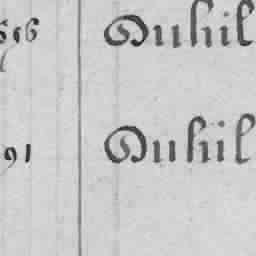 816 Duhil
91 Duhil